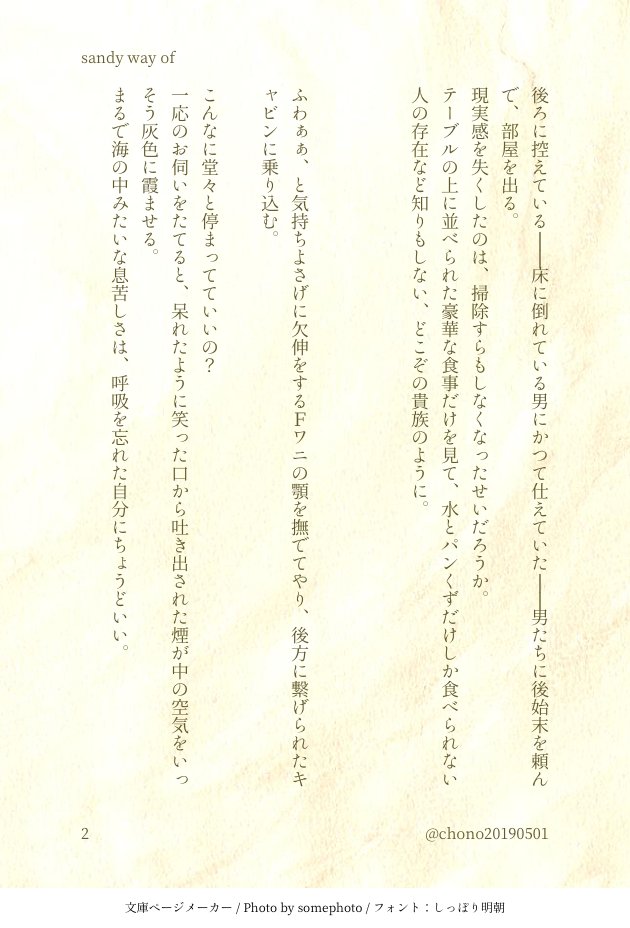 sandy way of
後ろに控えている――床に倒れている男にかつて仕えていた――男たちに後始末を頼ん
で、部屋を出る。
現実感を失くしたのは、掃除すらもしなくなったせいだろうか。
テーブルの上に並べられた豪華な食事だけを見て、水とパンくずだけしか食べられない
人の存在など知りもしない、どこぞの貴族のように。
ふわぁぁ、と気持ちよさげに欠伸をするＦワニの顎を撫でてやり、後方に繋げられたキ
ャビンに乗り込む。
こんなに堂々と停まってていいの？
一応のお伺いをたてると、呆れたように笑った口から吐き出された煙が中の空気をいっ
そう灰色に霞ませる。
まるで海の中みたいな息苦しさは、呼吸を忘れた自分にちょうどいい。
2
@chono20190501
文庫ページメーカー / Photo by somephoto / フォント：しっぽり明朝